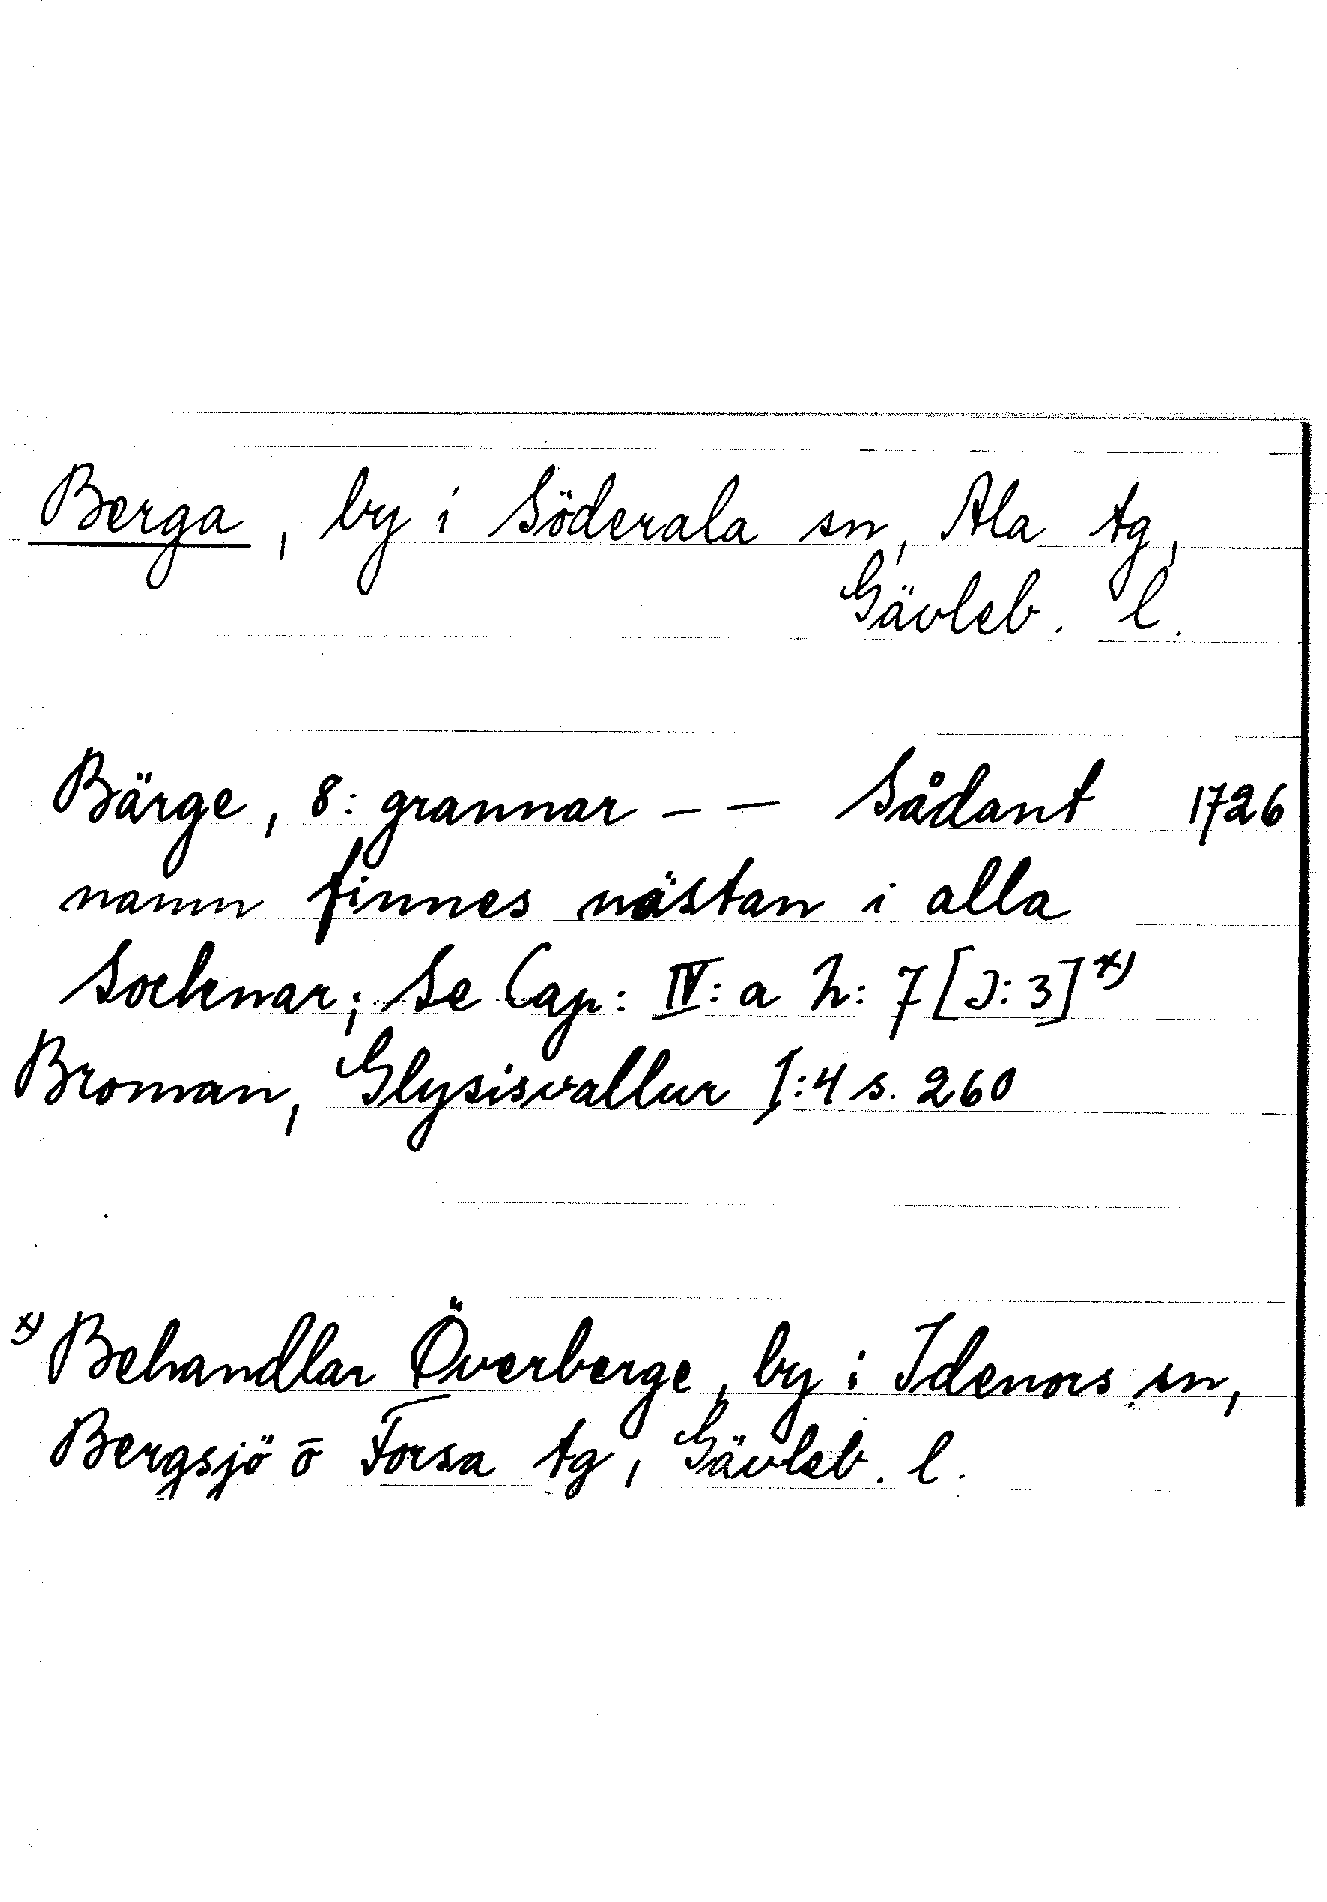 Berga, by i Söderala sn, Ala tg,
Gävleb. l.
Bärge, 8: grannar – – Sådant 1726
namn finnes nästan i alla
Socknar; Se Cap: IV: a h: 7 [J: 3] x)
Broman, Glysisvallur I:4 s. 260
x) Behandlar Överberge, by i Idenors sn,
Bergsjö o Forsa tg, Gävleb. l.